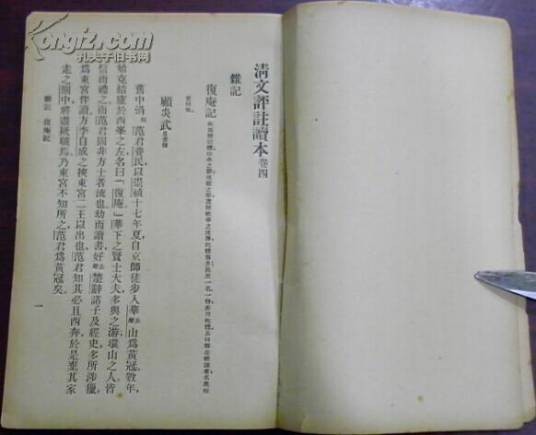 kongfz.com
孔夫子旧书网
清文評註讀本 卷四
雜記
復庵記
顧炎武
舊中涓范君養民以崇禎十七年夏自京師徒步入華山爲黃冠數年
始克結廬於西峯之左名曰「復庵」華下之賢士大夫多與之游環山之人皆
信而禮之而范君固非方士者流也幼而讀書好楚辭諸子及經史多所涉獵
爲東宮伴讀方李自成之挾東宮二王以出也范君知其必且西奔於是棄其家
走之關中將盡厥職焉乃東宮不知所之范君爲黃冠矣
雜記 復庵記
一